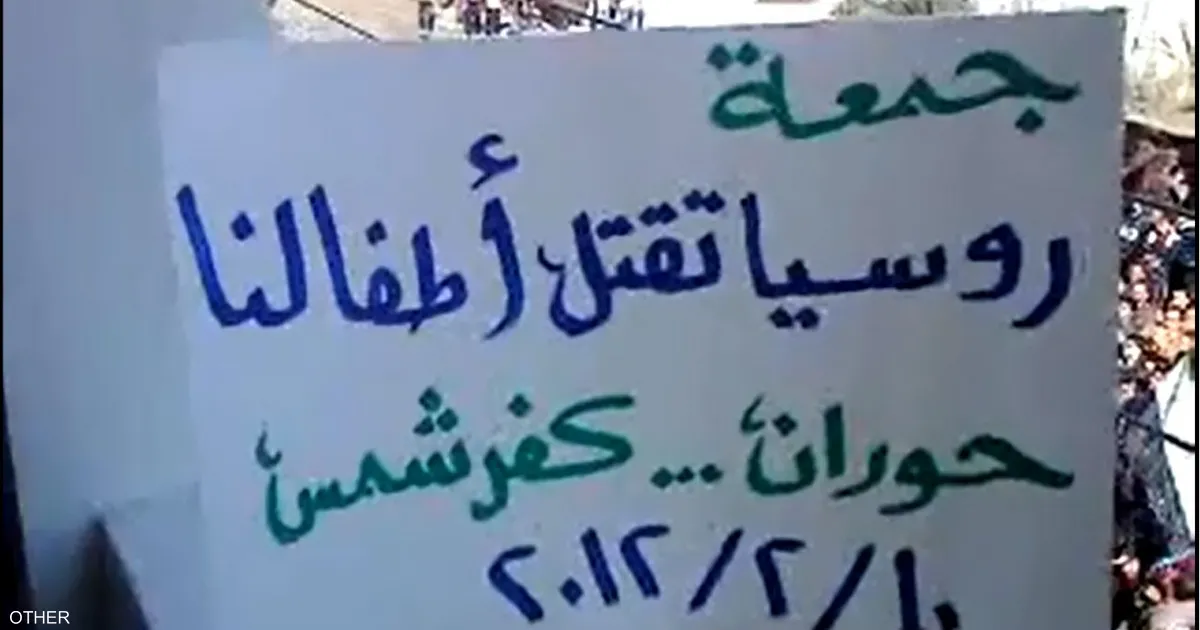 جمعة
روسيا تقتل أطفالنا
حوران ... كفر شمس
١٠/٢/٢٠١٢
OTHER